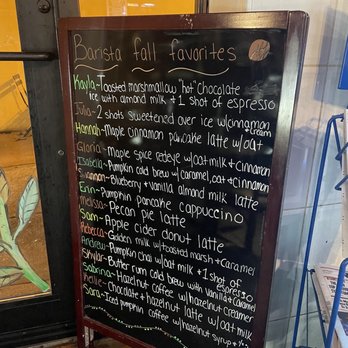 Barista fall favorites
Kayla-Toasted marshmallow hot chocolate
ice with almond milk + 1 shot of espresso
Julia-2 shots sweetened over ice w/cinnamon
+ cream
Hannah-Maple cinnamon pancake latte w/oat
Gloria-Maple spice redeye w/oat milk + Cinnamon
Isabella-Pumpkin cold brew w/caramel, oat + Cinnamon
Shannon-Blueberry + Vanilla almond milk latte
Erin-Pumpkin pancake cappuccino
Melissa-Pecan pie latte
Sam-Apple cider donut latte
Rebecca-Golden milk w/toasted marsh + Caramel
Andrew-Pumpkin chai w/oat milk + 1 shot of
espresso
Skylar-Butter rum cold brew with vanilla + Caramel
Sabrina-Hazelnut coffee w/hazelnut creamer
Kellie-Chocolate + hazelnut latte w/oat milk
Sara-Iced pumpkin coffee w/hazelnut syrup +